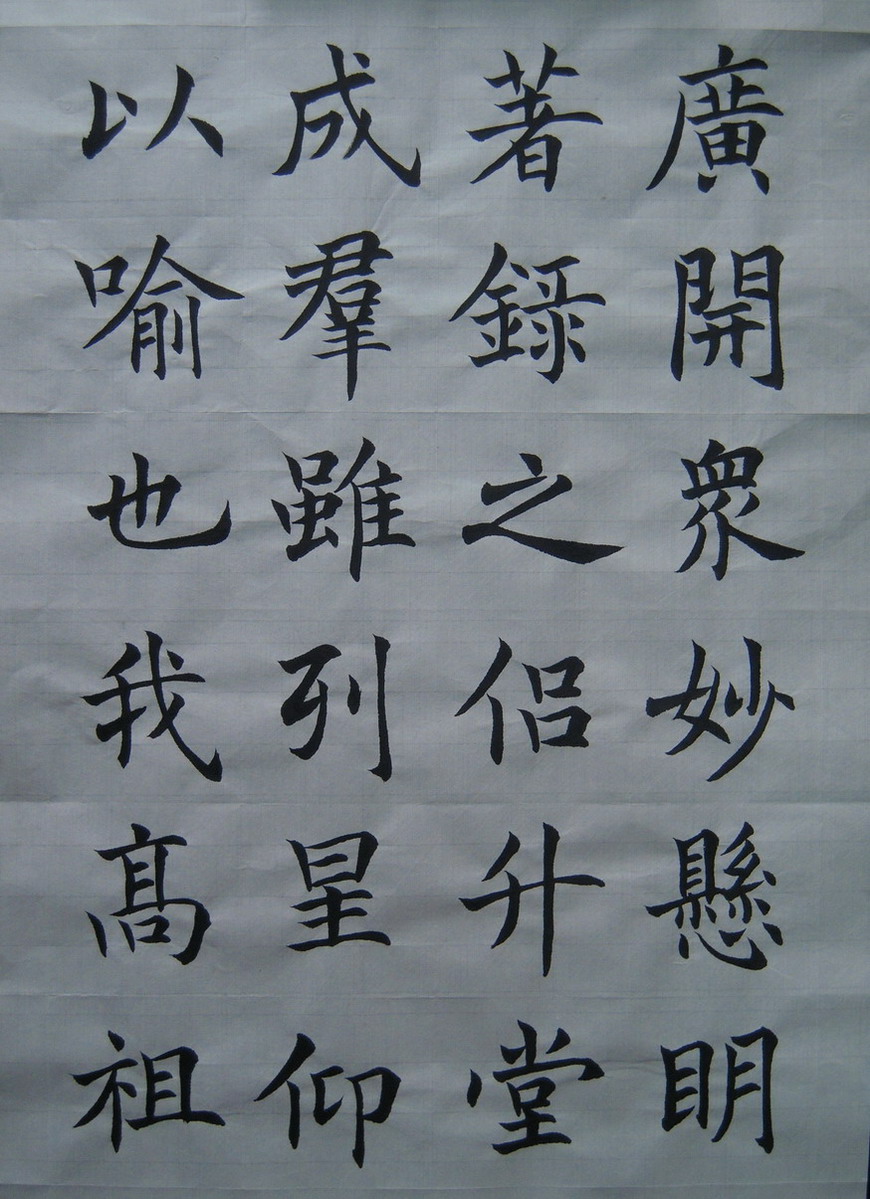 廣開衆妙懸明
著録之侣升堂
成羣雖列星仰
以喻也我髙祖